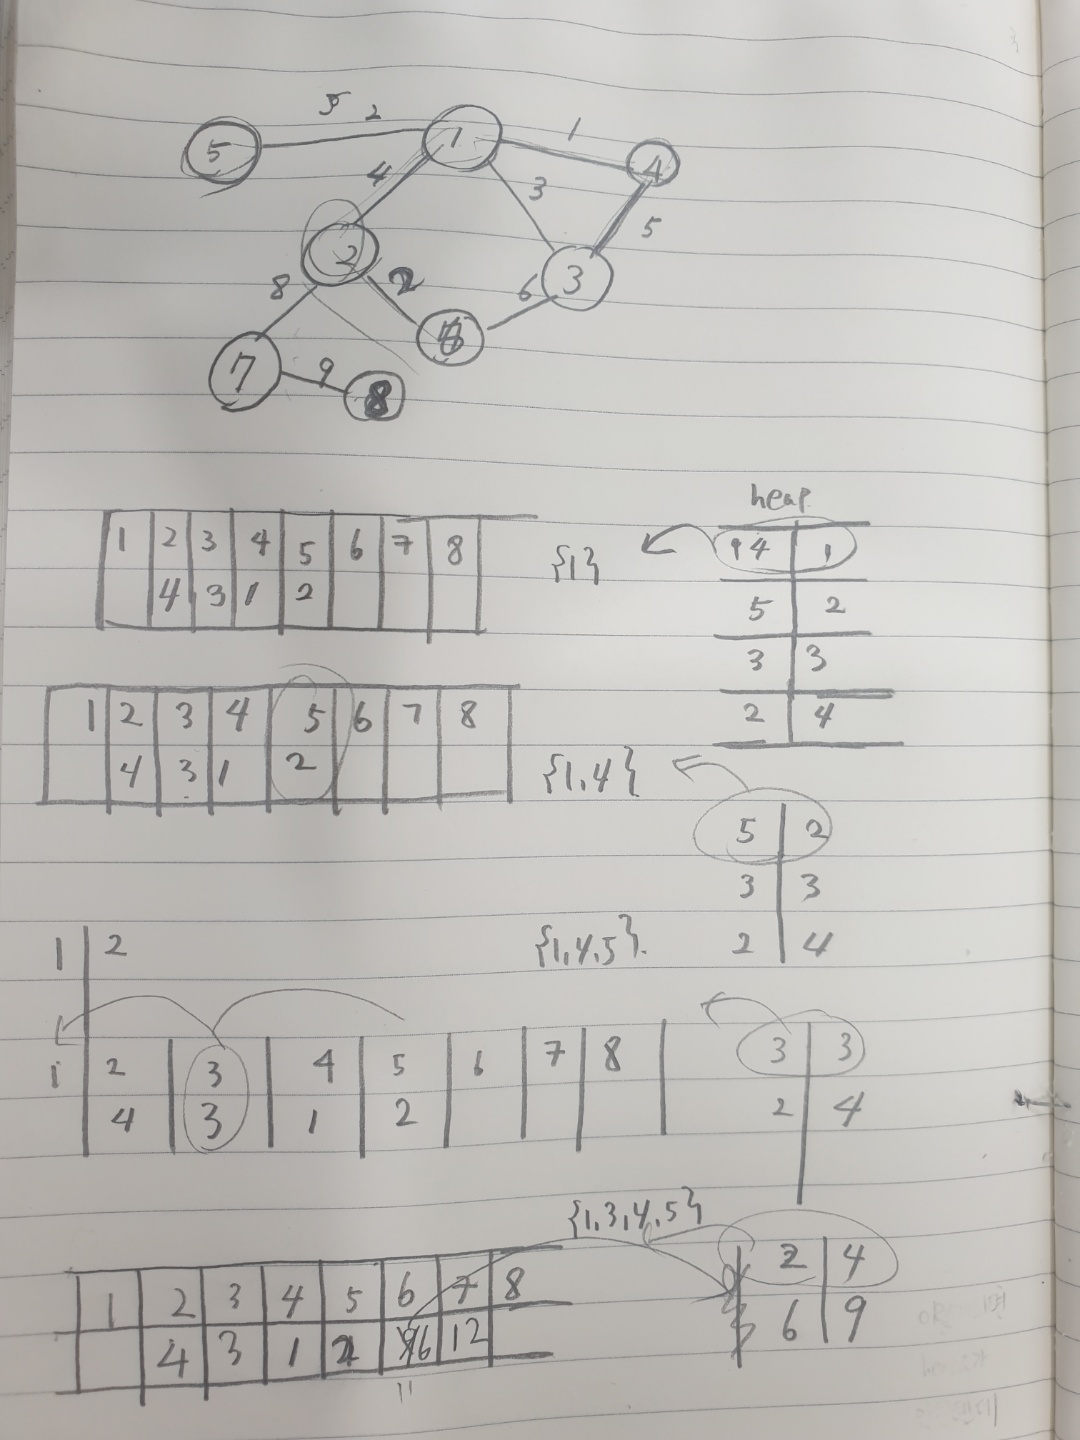 5 2
1
1
5
4
4
3
5
2
2
8
6
3
7
9
8
heap
1 2 3 4 5 6 7 8
4 3 1 2
{1}
4 1
5 2
3 3
2 4
1 2 3 4 5 6 7 8
4 3 1 2
{1,4}
5 2
3 3
2 4
1 2
{1,4,5}.
1 2 3 4 5 6 7 8
4 3 1 2
3 3
2 4
{1,3,4,5}
1 2 3 4 5 6 7 8
4 3 1 2 6 12
2 4
6 9